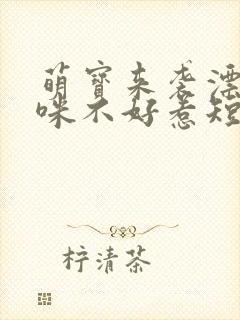 萌宝来袭漂
咪不好惹短
柠清茶